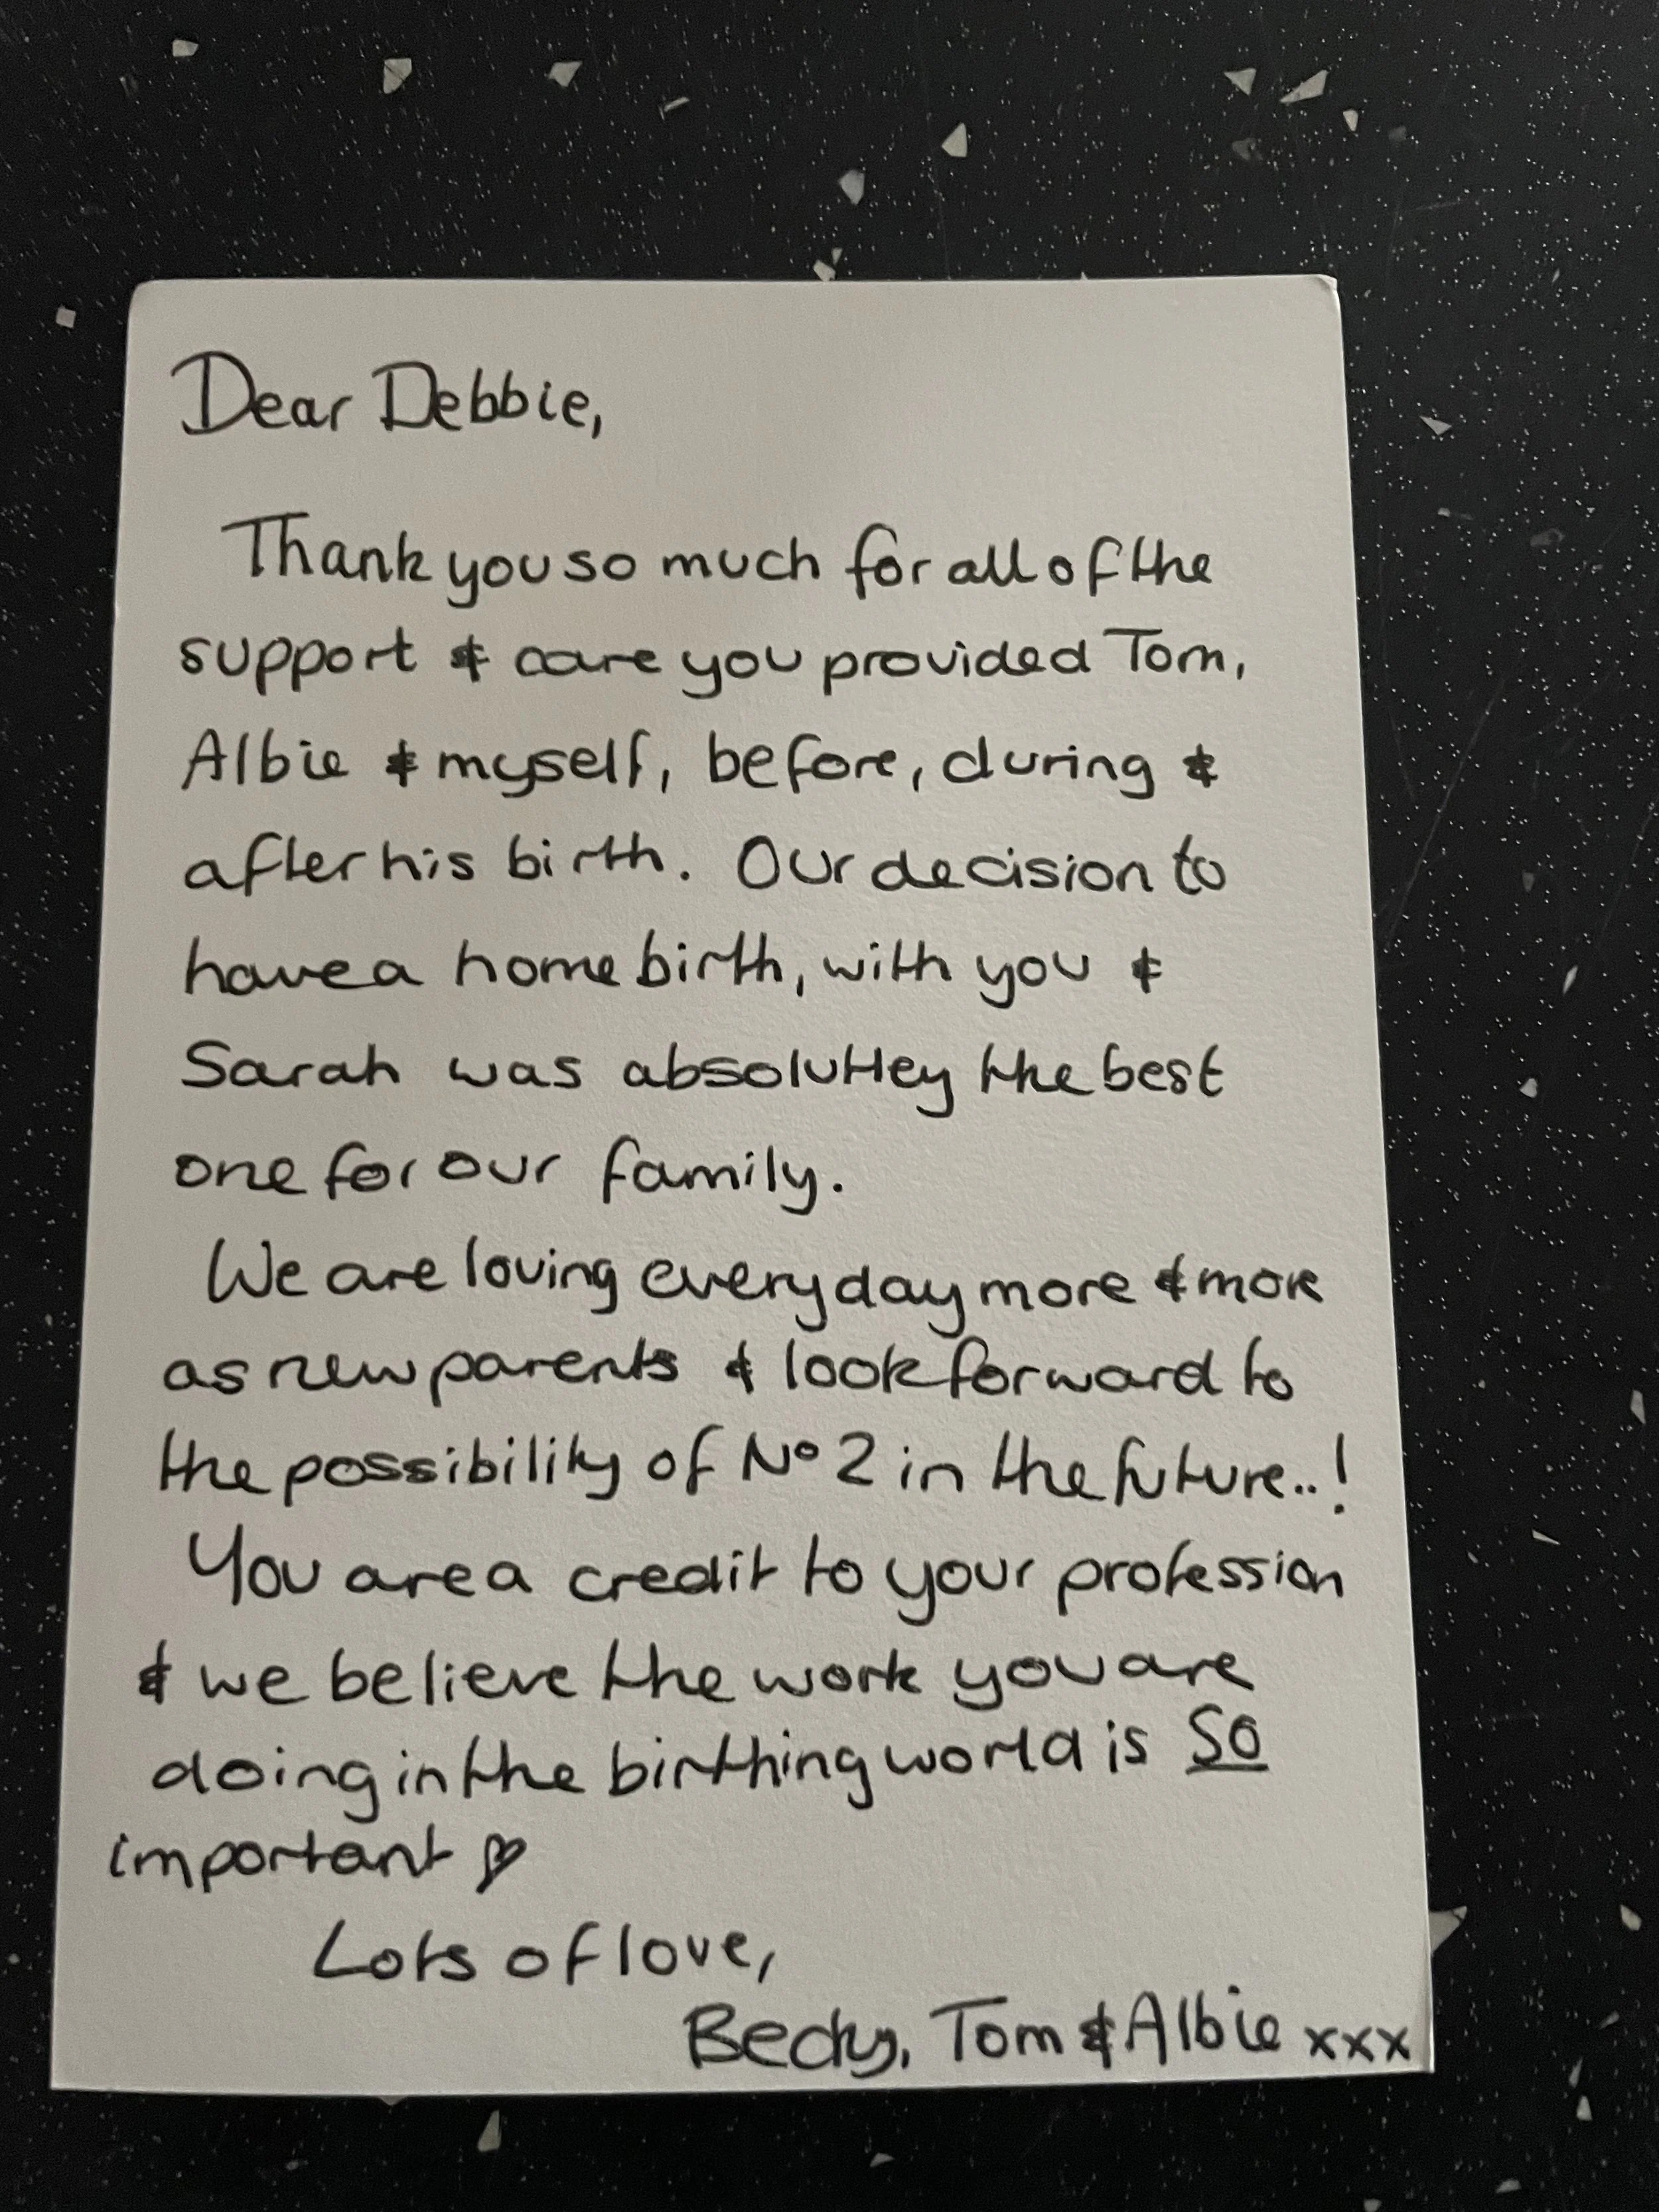 Dear Debbie,
Thank you so much for all of the
support & care you provided Tom,
Albie & myself, before, during &
after his birth. Our decision to
have a home birth, with you &
Sarah was absoluttey the best
one for our family.
We are loving everyday more & more
as new parents & look forward to
the possibility of Nº 2 in the future..!
You are a credit to your profession
& we believe the work you are
doing in the birthing world is SO
important ♡
Lots of love,
Becky, Tom & Albie xxx